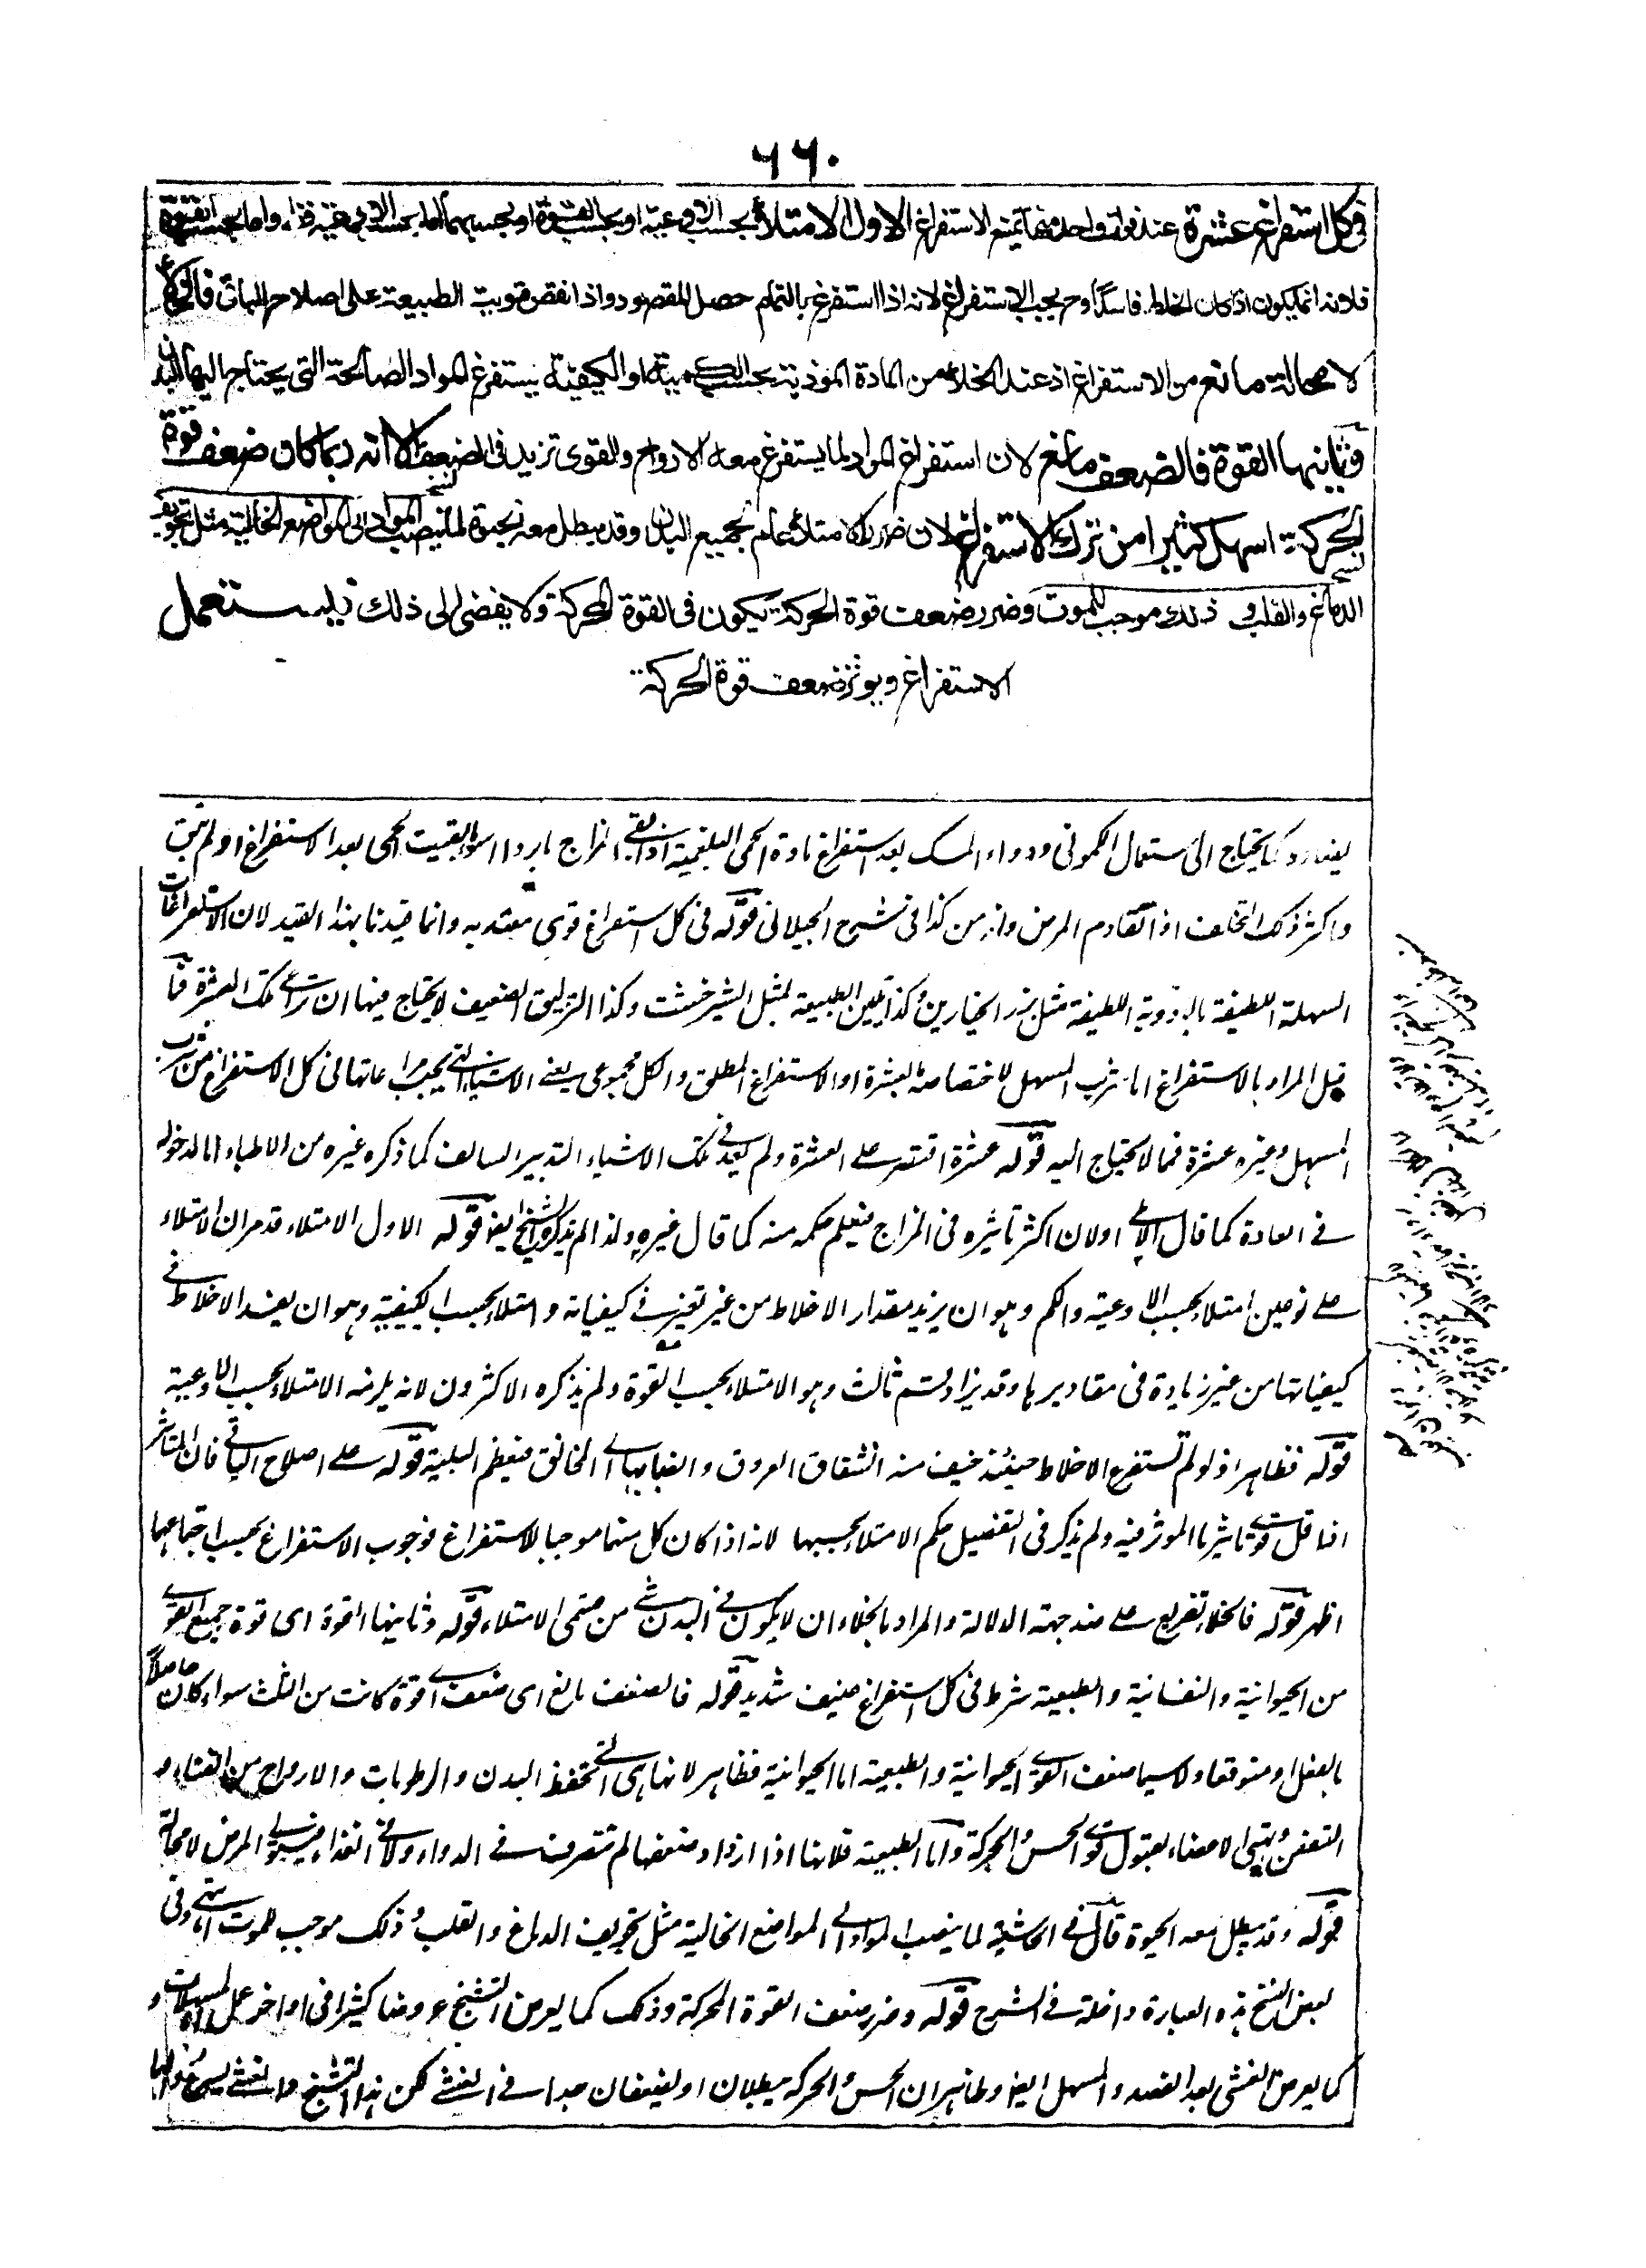 ٦٦٠
فی کل استفراغ عشرة عند فوات واحد منها یمتنع الاستفراغ الاول الامتلاء بحسب الاوعیة او بحسب القوة او بحسبهما اما بحسب الاوعیة فظاهر واما بحسب القوة
فلانه انما یکون اذا کان الخلط فاسدًا وح یجب الاستفراغ لانه اذا استفرغ بالتمام حصل المقصود واذا نقص قویت الطبیعة علی اصلاح الباقی فالخلاء
لا محالة مانع من الاستفراغ اذ عند الخلاء من المادة الموذیة بحسب الکمیة او الکیفیة یستفرغ المواد الصالحة التی یحتاج الیها البدن
وثانیها القوة فالضعف مانع لان استفراغ المواد لما یستفرغ معه الارواح والقوی تزید فی الضعف الا انه ربما کان ضعف قوة
الحرکة اسهل کثیرا من ترک الاستفراغ لان ضرر الامتلاء عام لجمیع البدن وقد یبطل معه الحیوة لما ینصب المواد الی المواضع الخالیة مثل تجویف
الدماغ والقلب و ذلک موجب للموت وضرر ضعف قوة الحرکة یکون فی القوة الحرکة ولا یفضی الی ذلک فلیستعمل
الاستفراغ ویوثر ضعف قوة الحرکة
یضاد کما یحتاج الی استعمال الکمونی ودواء المسک بعد استفراغ مادة الحمی البلغمیة اذا بقی المزاج باردا سواء بقیت الحمی بعد الاستفراغ او لم تبق
واکثر ذلک التخلف اذا تقادم المرض وازمن کذا فی شرح الجیلانی قوله فی کل استفراغ قوی معتد به وانما قیدنا بهذا القید لان الاستفراغات
السهلة اللطیفة بالادویة اللطیفة مثل بزر الخیارین وکذا تلیین الطبیعة بمثل الشیرخشت وکذا التزلیق الضعیف لا یحتاج فیها ان تراعی تلک العشرة
قیل المراد بالاستفراغ اما شرب المسهل لاختصاصه بالعشرة او الاستفراغ المطلق والکل مجموعی یعنی الاشیاء التی یجب مراعاتها فی کل الاستفراغ من شرب
المسهل وغیره عشرة فما لا یحتاج الیه قوله عشرة اقتصر علی العشرة ولم یعد فی تلک الاشیاء التدبیر السالف کما ذکره غیره من الاطباء اما لدخوله
فی العادة کما قال الآملی او لان اکثر تاثیره فی المزاج فیعلم حکمه منه کما قال غیره ولذا لم یذکره الشیخ ایضا قوله الاول الامتلاء قد مر ان الامتلاء
علی نوعین امتلاء بحسب الاوعیة والکم وهو ان یزید مقدار الاخلاط من غیر تغیر فی کیفیاته وامتلاء بحسب الکیفیة وهو ان یفسد الاخلاط فی
کیفیاتها من غیر زیادة فی مقادیرها وقد یزاد قسم ثالث وهو الامتلاء بحسب القوة ولم یذکره الاکثرون لانه یلزمه الامتلاء بحسب الاوعیة
قوله فظاهر اذ لو لم تستفرغ الاخلاط حینئذ خیف منه انشقاق العروق وانصبابها الی المخانق فیعظم البلیة قوله علی اصلاح الباقی فان المتاثر
اذا قل قوی تاثیر الموثر فیه ولم یذکر فی التفصیل حکم الامتلاء بحسبهما لانه اذا کان کل منهما موجبا للاستفراغ فوجوب الاستفراغ بحسب اجتماعهما
اظهر قوله فالخلاء تفریع علی ضد جهة الدلالة والمراد بالخلاء ان لا یکون فی البدن شی من قسمی الامتلاء قوله وثانیها القوة ای قوة جمیع القوی
من الحیوانیة والنفسانیة والطبعیة شرط فی کل استفراغ عنیف شدید قوله فالضعف مانع ای ضعف ای قوة کانت من الثلث سواء کان حاصلا
بالفعل او متوقعا ولا سیما ضعف القوة الحیوانیة والطبعیة اما الحیوانیة فظاهر لانها هی التی تحفظ البدن والرطوبات والارواح من الفساد و
التعفن وتهیئ الاعضاء لقبول قوی الحس والحرکة واما الطبیعیة فلانها اذا ازداد ضعفها لم تتصرف فی الدواء ولا فی الغذاء فیستولی المرض لا محالة
قوله وقد یبطل معه الحیوة قال فی الحاشیة لما ینصب المواد الی المواضع الخالیة مثل تجویف الدماغ والقلب وذلک موجب للموت انتهی وفی
بعض النسخ هذه العبارة داخلة فی الشرح قوله وضرر ضعف القوة المحرکة وذلک کما یعرض التشنج عروضا کثیرا فی اواخر عمل المسهلات و
کما یعرض الغشی بعد الفصد والمسهل ایضا وظاهر ان الحس والحرکة یبطلان او یضعفان جدا فی الغشی لکن هذا التشنج والغشی